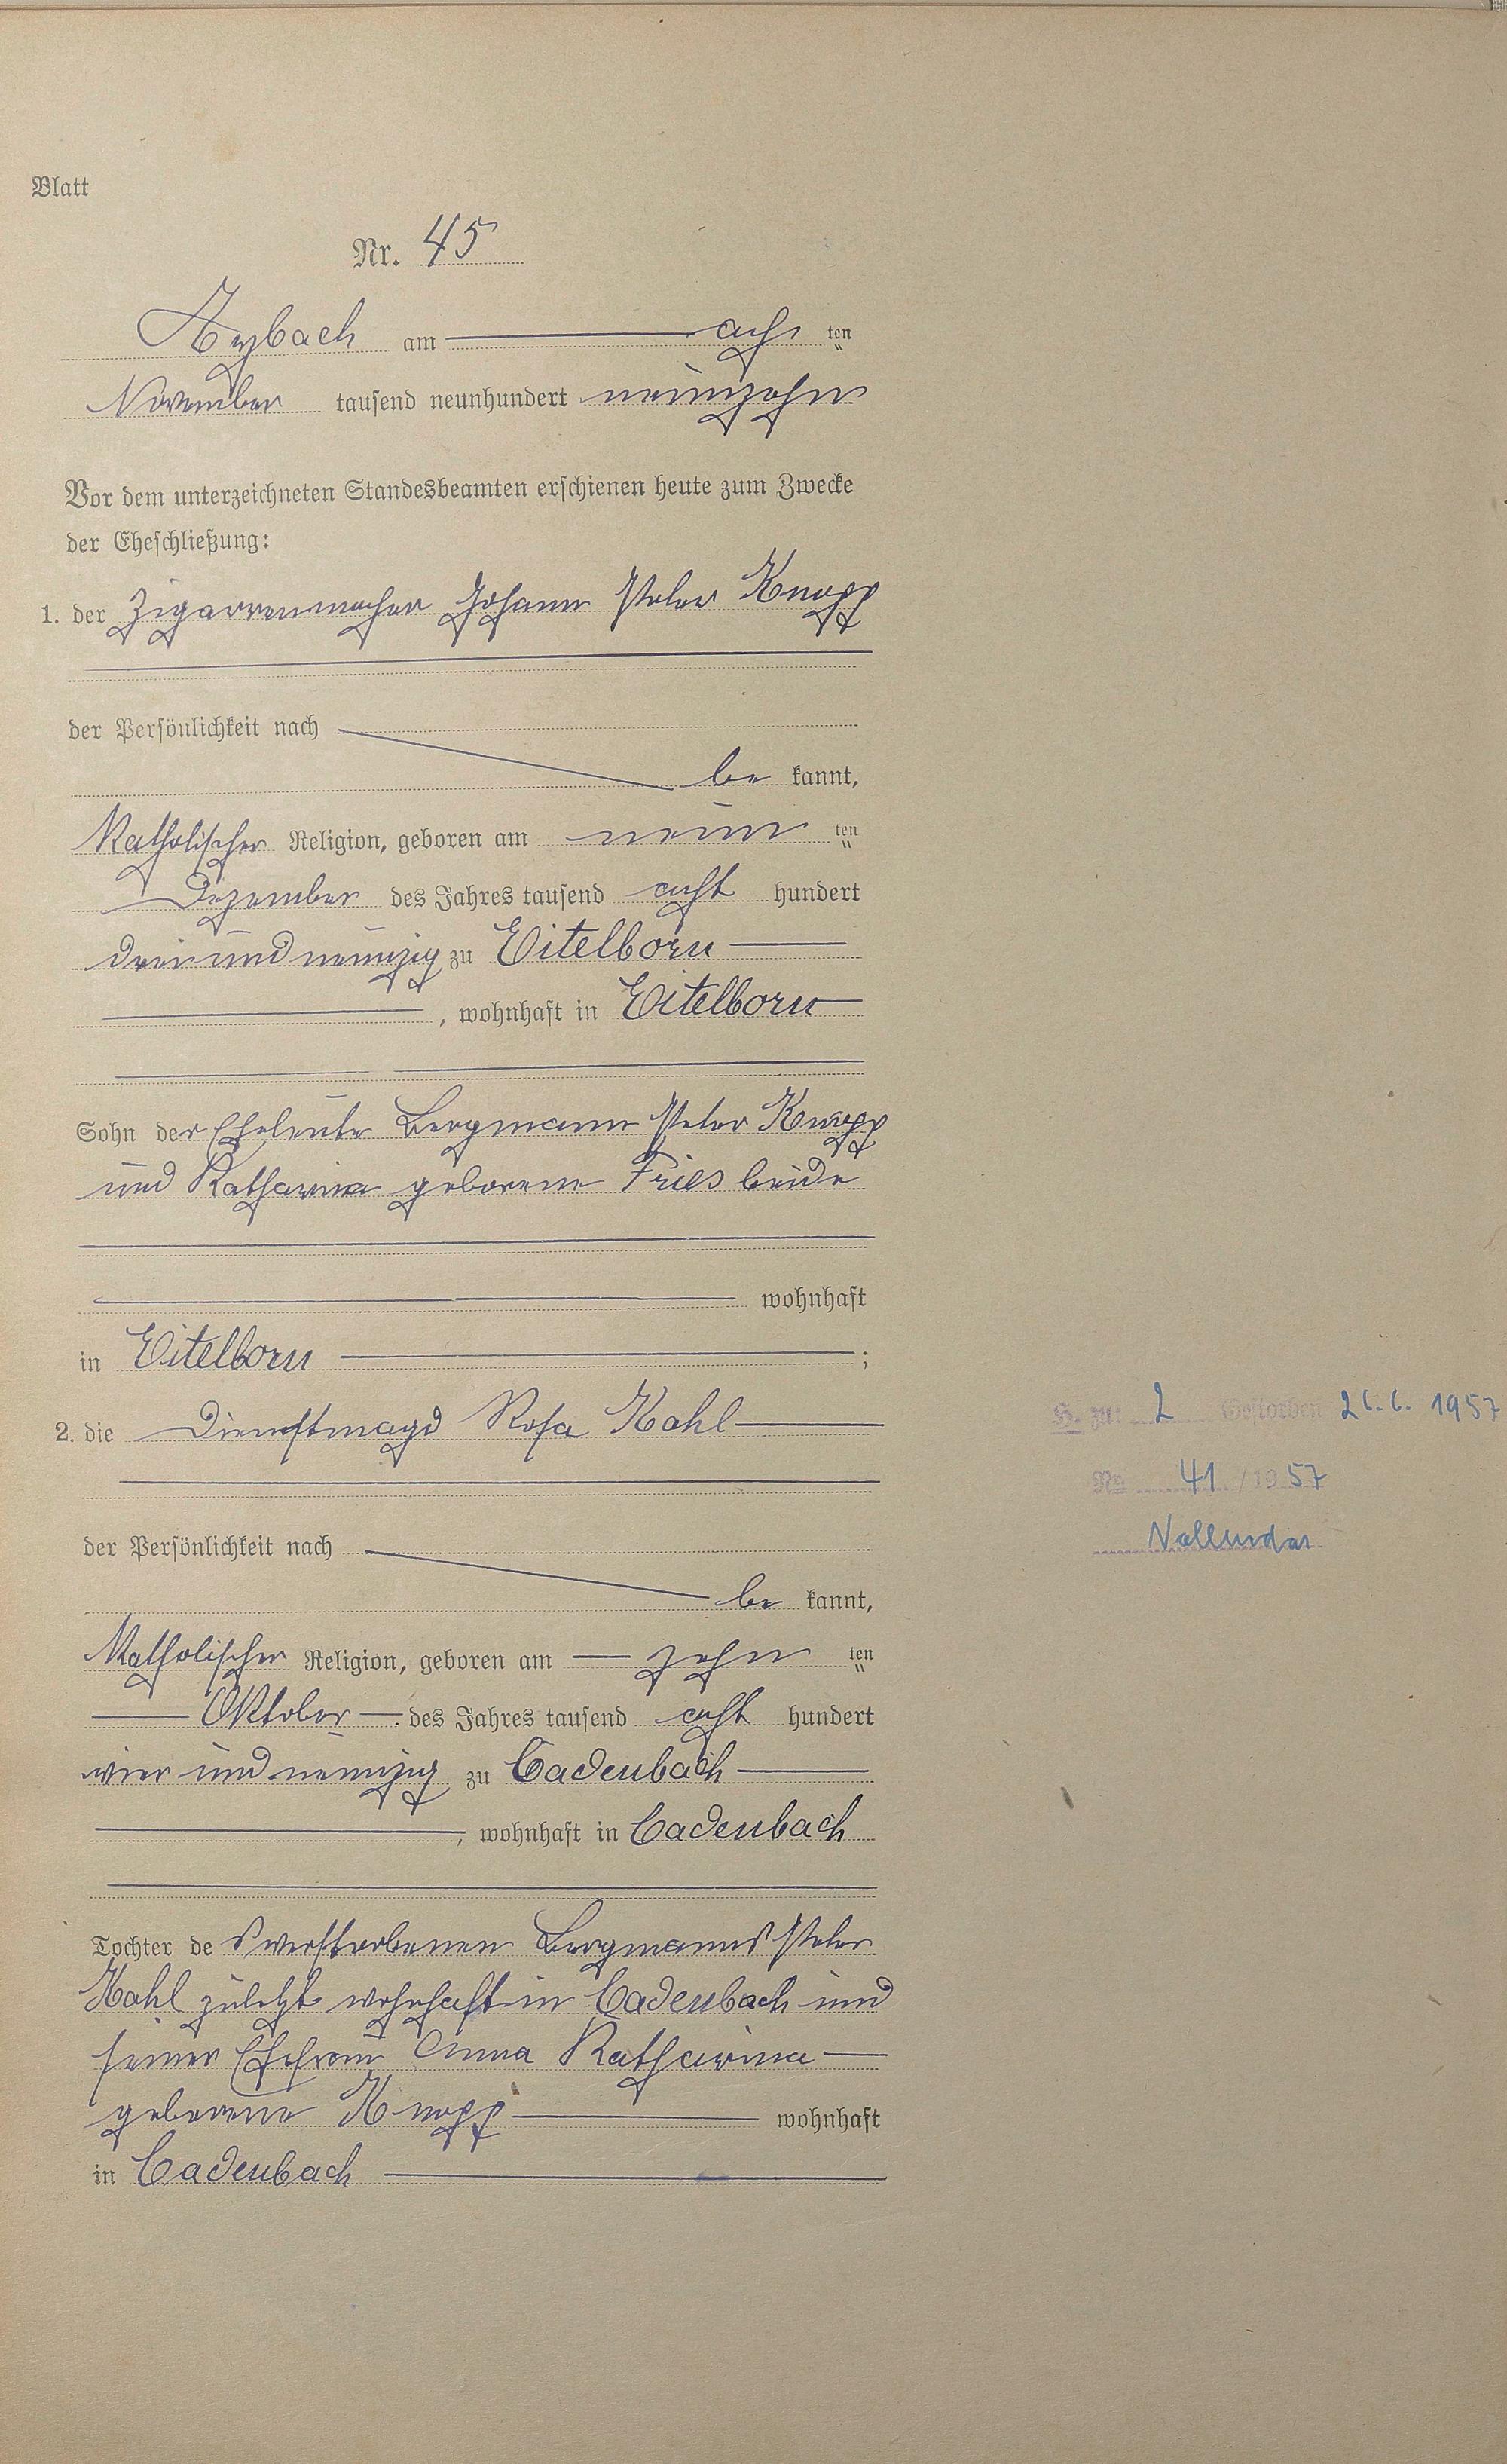 Blatt
Nr. 45
Arzbach am ach ten
November tausend neunhundert neunzehn
Vor dem unterzeichneten Standesbeamten erschienen heute zum Zwecke
der Eheschließung:
1. der Zigarrenmacher Johann Peter Knopp
der Persönlichkeit nach
be kannt,
Katholischer Religion, geboren am neun ten
Dezember des Jahres tausend acht hundert
drei und neunzig zu Eitelborn
, wohnhaft in Eitelborn
Sohn der Eheleute Bergmann Peter Knopp
und Katharina geborene Fries beide
wohnhaft
in Eitelborn ;
2. die Dienstmagd Rosa Kahl
der Persönlichkeit nach
be kannt,
Katholischer Religion, geboren am zehn ten
Oktober des Jahres tausend acht hundert
vier und neunzig zu Cadenbach
, wohnhaft in Cadenbach
Tochter des verstorbenen Bergmanns Peter
Kahl zuletzt wohnhaft in Cadenbach und
seiner Ehefrau Anna Katharina
geborene Knopp wohnhaft
in Cadenbach
S. zu: 2 Gestorben 26.6. 1957
No 41 / 1957
Vallendar